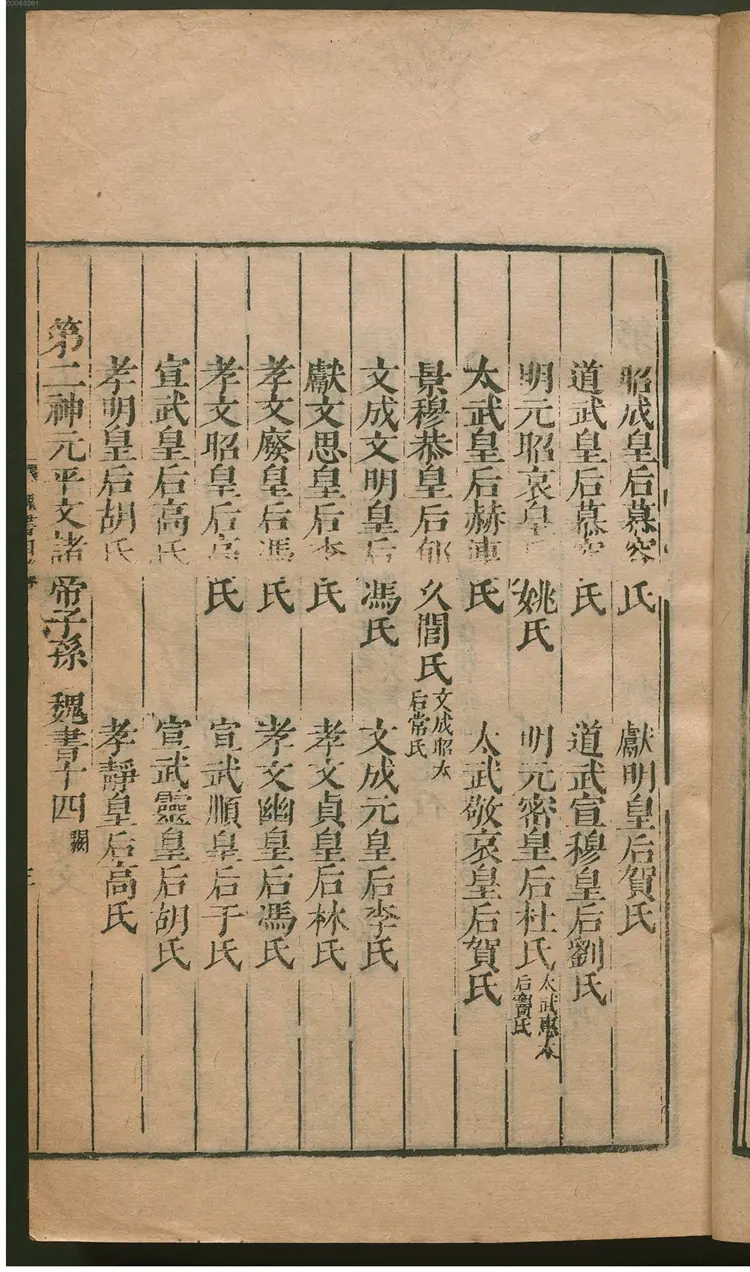 昭成皇后慕容氏　獻明皇后賀氏
道武皇后慕容氏　道武宣穆皇后劉氏
明元昭哀皇后姚氏　明元密皇后杜氏太武惠太后竇氏
太武皇后赫連氏　太武敬哀皇后賀氏
景穆恭皇后郁久閭氏文成昭太后常氏
文成文明皇后馮氏　文成元皇后李氏
獻文思皇后李氏　孝文貞皇后林氏
孝文廢皇后馮氏　孝文幽皇后馮氏
孝文昭皇后高氏　宣武順皇后于氏
宣武皇后高氏　宣武靈皇后胡氏
孝明皇后胡氏　孝靜皇后高氏
第二神元平文諸帝子孫　魏書十四闕